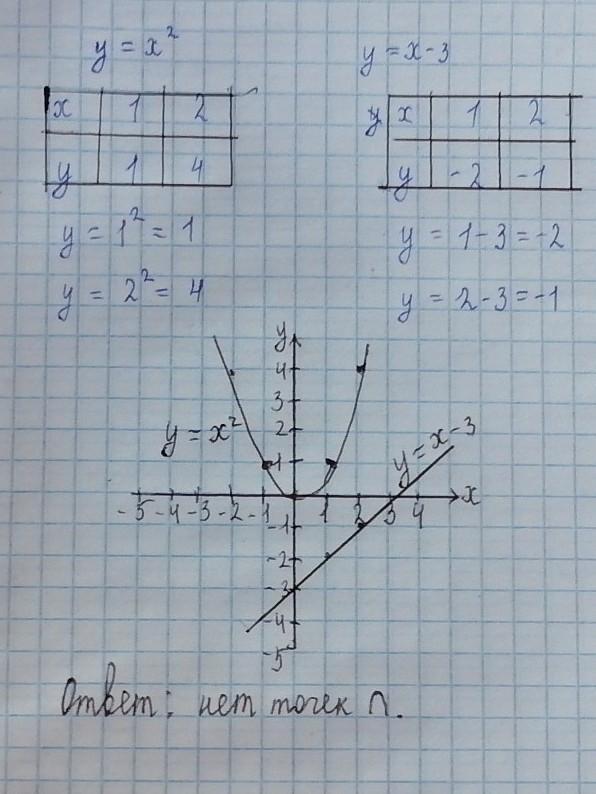 y = x²
y = x-3
x 1 2
y 1 4
y x 1 2
y -2 -1
y = 1² = 1
y = 1-3 = -2
y = 2² = 4
y = 2-3 = -1
y
4
3
2
1
y = x²
y = x-3
-5 -4 -3 -2 -1 1 2 3 4 x
-1
-2
-3
-4
-5
Ответ: нет точек ∩.